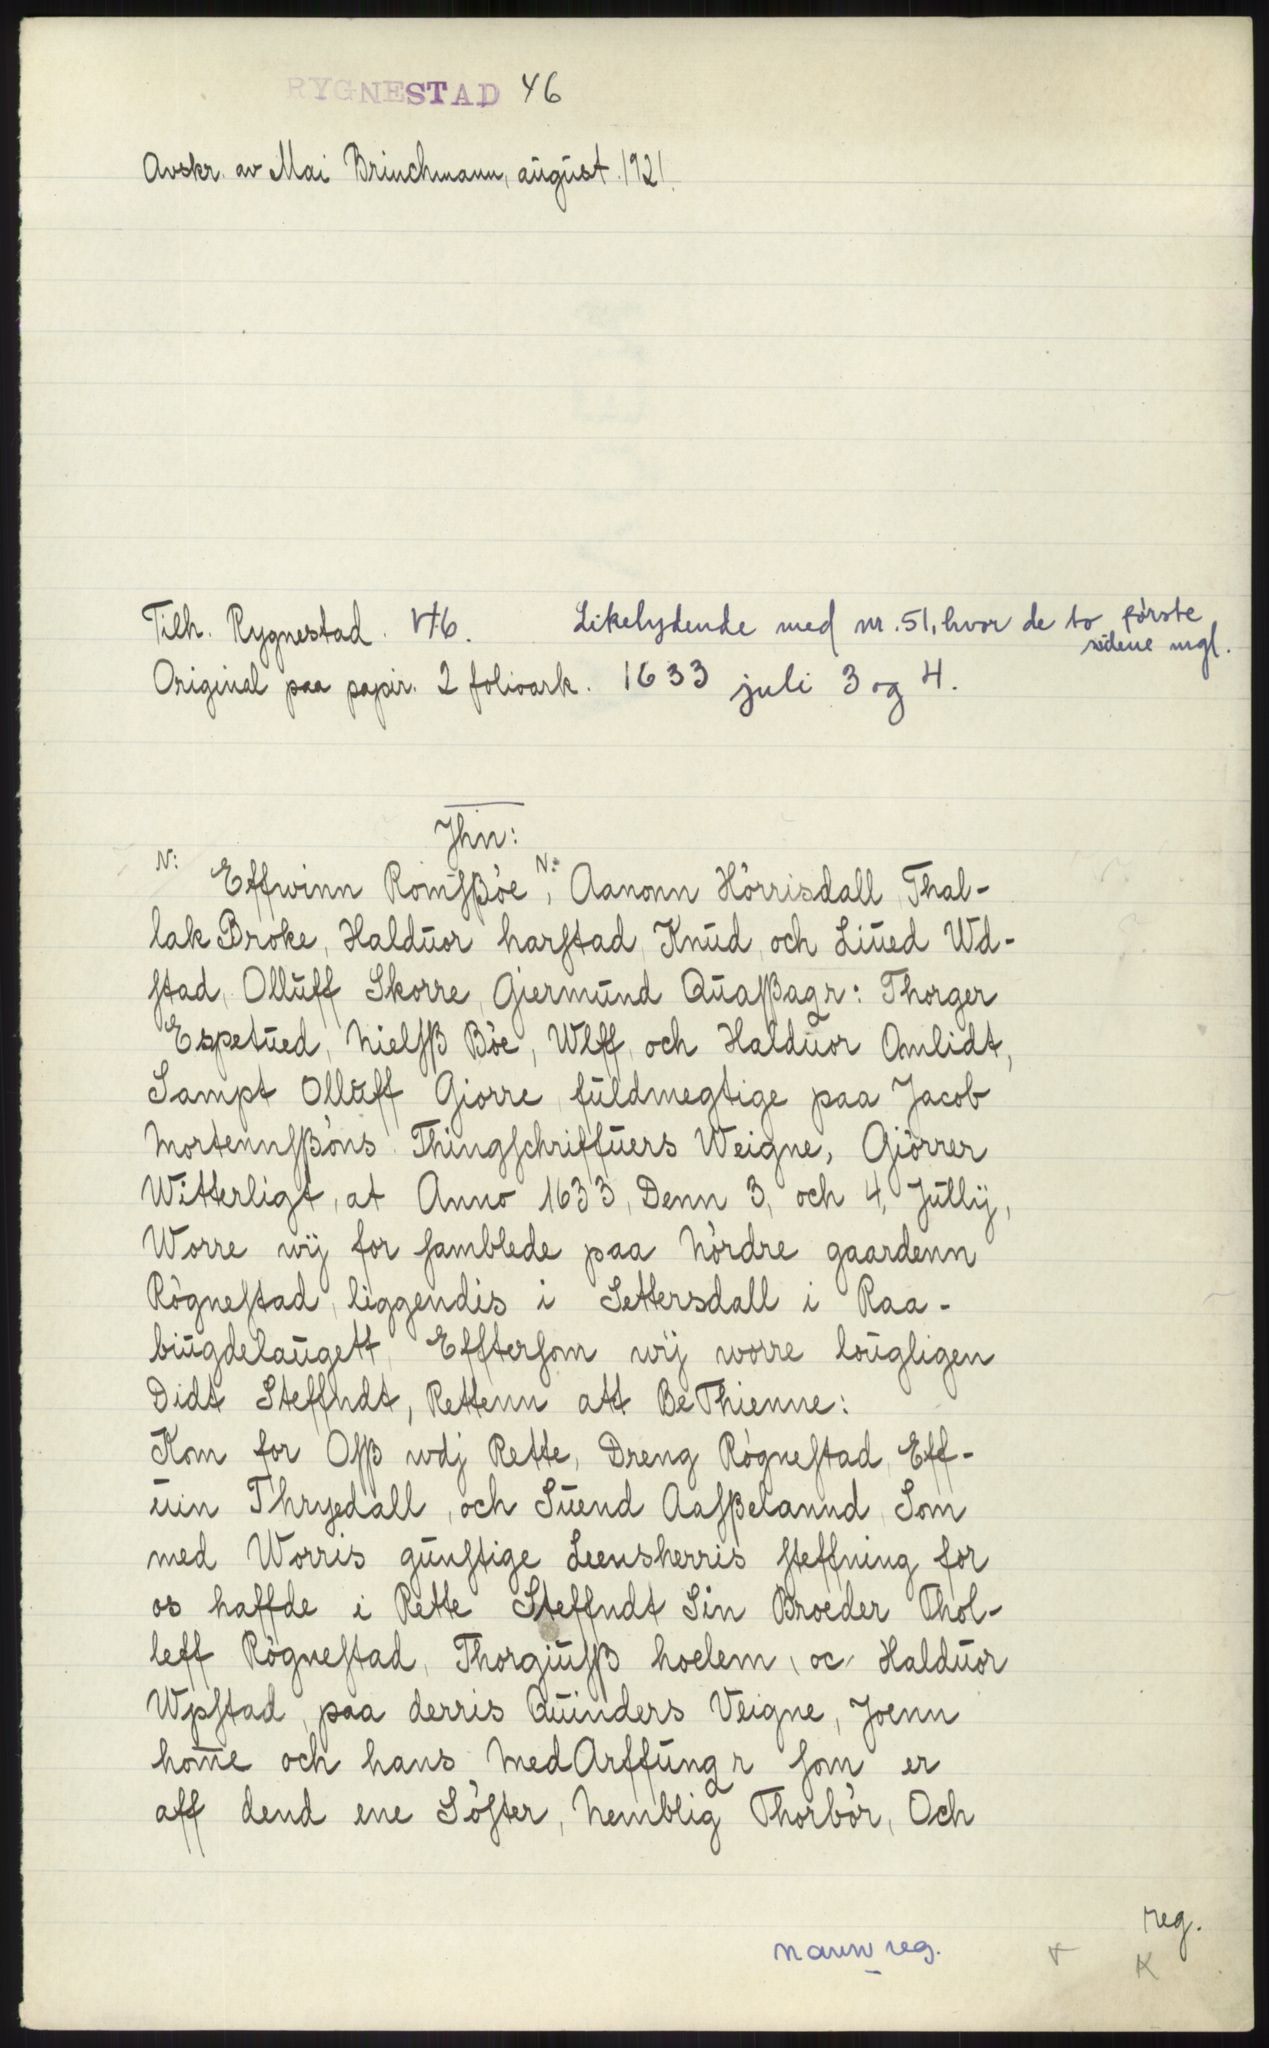 RYGNESTAD 46
Avskr. av Mai Brinchmann, august 1921.
Tilh. Rygnestad. 46. Likelydende med nr. 51, hvor de to første
sidene mgl.
Original paa papir. 2 folioark. 1633 juli 3 og 4.
Jhn:
N: Effwinn Romſßöe N:, Aanonn Hörrisdall, Thal-
lak Broke, Halduor harſtad, Knud, och Liued Wd-
ſtad, Olluff Skorre, Giermund Quaſßagr: Thorger
Espetued, Nielſß Böe, Wlff, och Halduor Omlidt,
Sampt Olluff Giorre, fuldmegtige paa Jacob
Mortennſßöns Thingſchriffuers Weigne, Giörrer
Witterligt, at Anno 1633, Denn 3, och 4, Jullÿ,
Worre wÿ for ſamblede paa Nördre gaardenn
Rögneſtad, liggendis i Settersdall i Raa-
biugdelaugett, Effterſom wÿ worre lougligen
Didt Steffndt, Rettenn att BeThienne:
Kom for Oſß udj Rette, Dreng Rögneſtad, Eff-
uin Thryedall, och Suend Aaſßelannd, Som
med Worris gunſtige Leensherris ſteffning for
os haffde i Rette Steffndt Sin Broeder Thol-
leff Rögneſtad, Thorgiuſß hoelem, oc Halduor
Wpſtad, paa derris Quinders Veigne, Joenn
hom̄e och hans MedArffungr ſom er
aff dend ene Söſter, Nemblig Thorbör, Och
reg.
navn reg.
K